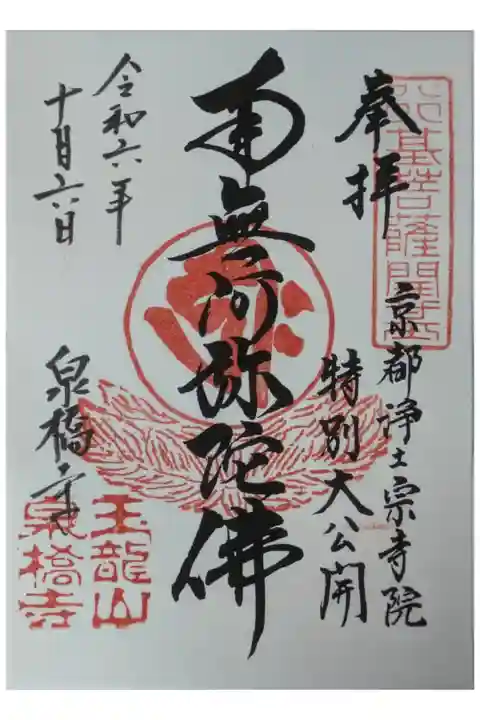 行基菩薩開基
奉拝
京都浄土宗寺院
特別大公開
南無阿弥陀佛
令和六年
十月六日
泉橋寺
玉龍山
泉橋寺